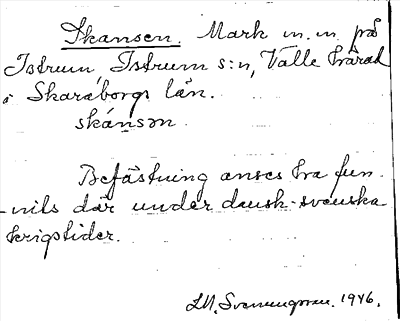 Skansen. Mark m.m på
Istrum, Istrum s:n, Valle härad
i Skaraborgs län.
skánsən
Befästning anses ha fun-
nits där under dansk-svenska
krigstider.
1946.